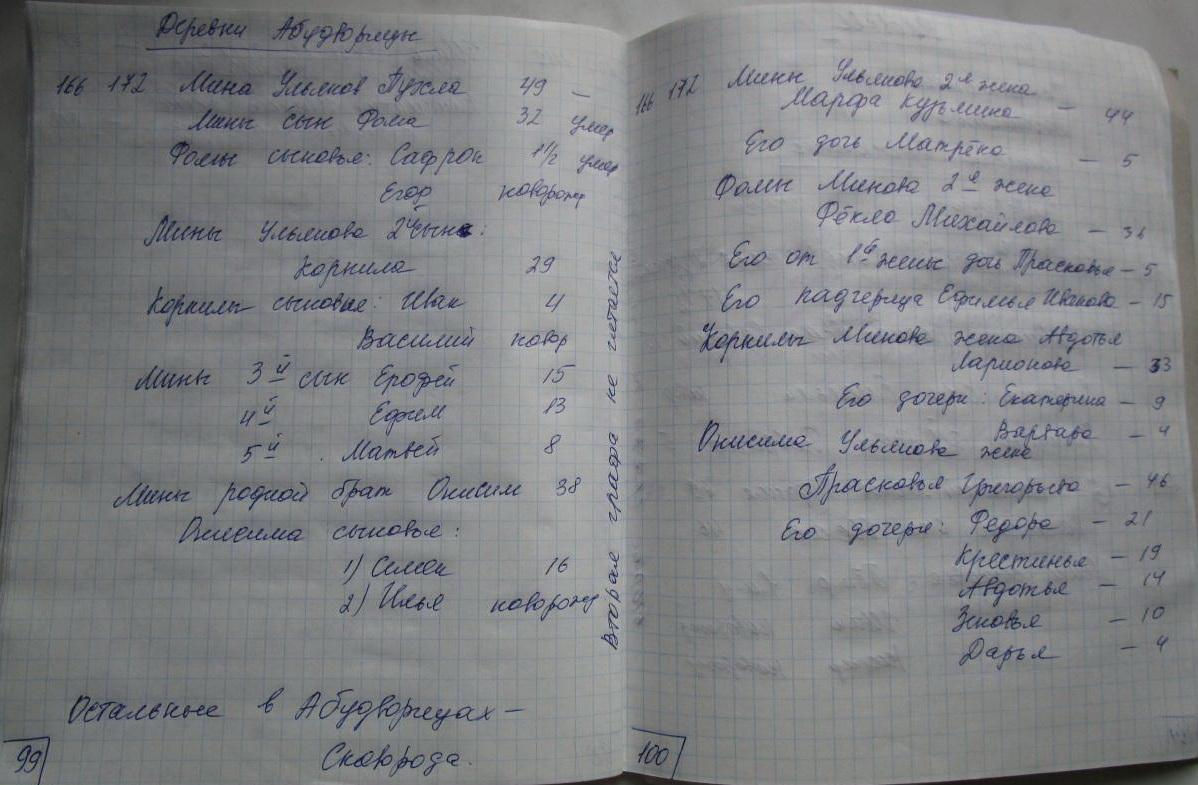 Деревни Абудворицы
166 172 Мина Ульянов Пухла 49 –
Мины сын Фома 32 умер
Фомы сыновья: Сафрон 1 1/2 умер
Егор новорожд
Мины Ульянова 2й сын:
Корнила 29
Корнилы сыновья: Иван 4
Василий новор
Мины 3й сын Ерофей 15
4й Ефим 13
5й Матвей 8
Мины родной брат Онисим 38
Онисима сыновья:
1) Симон 16
2) Илья новорожд
Остальные в Абудворицах –
Сковрода.
99
Вторая графа не читается
166 172 Мины Ульянова 2я жена
Марфа Кузьмина – 44
Его дочь Матрёна – 5
Фомы Минова 2я жена
Фёкла Михайлова – 36
Его от 1й жены дочь Прасковья – 5
Его падчерица Ефимья Иванова – 15
Корнилы Минова жена Авдотья
Ларионова – 33
Его дочери: Екатерина – 9
Варвара – 4
Онисима Ульянова жена
Прасковья Григорьева – 46
Его дочери: Федора – 21
Крестинья – 19
Авдотья – 14
Зновья – 10
Дарья – 4
100